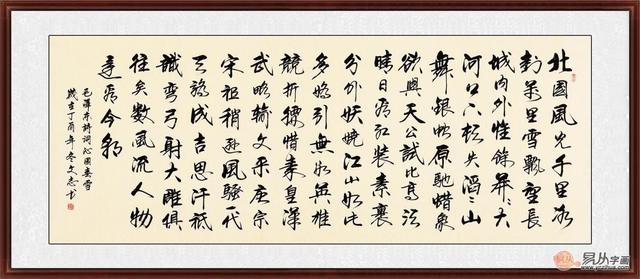 北國風光千里冰
封萬里雪飄望長
城内外惟餘莽〻大
河上下頓失滔〻山
舞銀蛇原馳蜡象
欲與天公試比高須
晴日看紅装素裹
分外妖嬈江山如此
多嬌引無數英雄
競折腰惜秦皇漢
武略輸文采唐宗
宋祖稍遜風騷一代
天驕成吉思汗祗
識彎弓射大雕俱
往矣數風流人物
還看今朝
毛澤東詩詞沁園春雪
歲在丁酉年冬文志书
易从字画